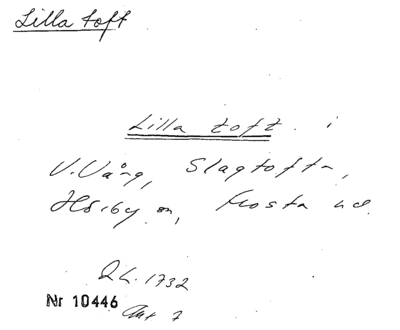 Lilla toft
Lilla toft i
V. Vång, Slagtofta,
Hörby sn, Frosta hd.
1732
Nr 10446